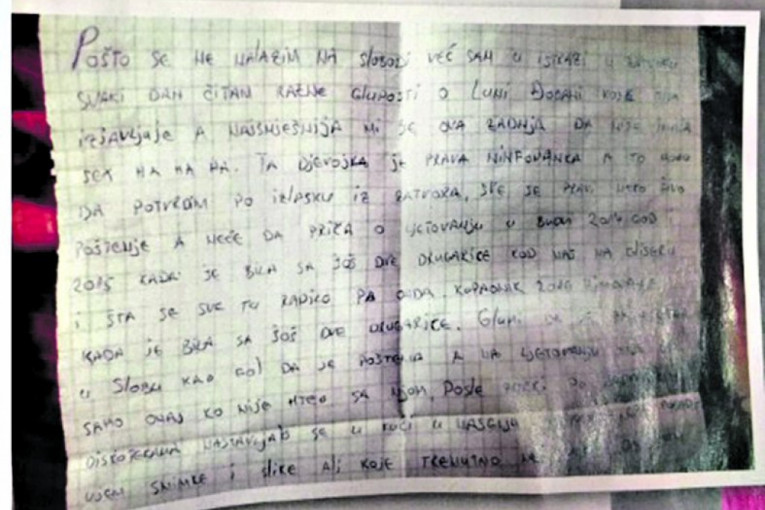 Pošto se ne nalazim na slobodi već sam u istrazi u zatvoru
svaki dan čitam razne gluposti o Luni Đogani koje
izjavljuje a najsmješnija mi je ova zadnja da nije
sex ha ha ha. Ta djevojka je prava ninfomanka a to mogu
da potvrdim po izlasku iz zatvora, sve se pravi neko živo
poštenje a neće da priča o ljetovanju u Budvi 2014 god i
2015 kada je bila sa još dve drugarice kod nas na
i šta se sve tu radilo pa onda Kopaonik
kada je bila sa još dve drugarice. Glumi
u Slobu kao gol da je poštena a na ljetovanju
samo onaj ko nije hteo sa njom. Posle
diskotekama nastavljalo se u kući u
ujem snimke i slike ali koje trenutno ne